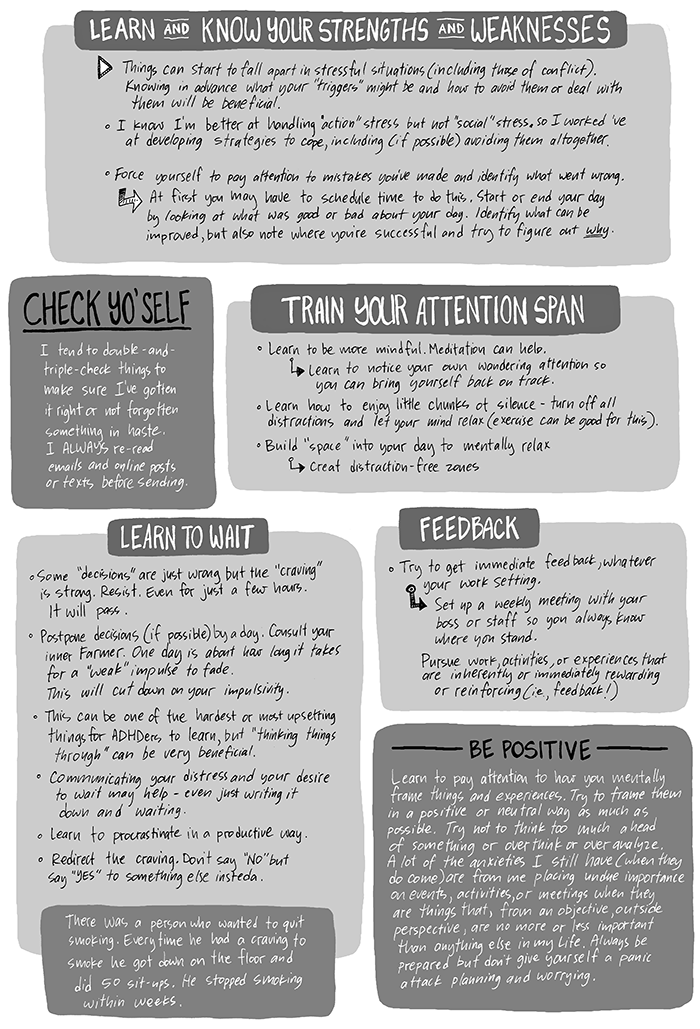 LEARN AND KNOW YOUR STRENGTHS AND WEAKNESSES
Things can start to fall apart in stressful situations (including those of conflict).
Knowing in advance what your "triggers" might be and how to avoid them or deal with
them will be beneficial.
I know I'm better at handling "action" stress but not "social" stress. so I worked 've
at developing strategies to cope, including (if possible) avoiding them altogether.
Force yourself to pay attention to mistakes you've made and identify what went wrong.
At first you may have to schedule time to do this. Start or end your day
by looking at what was good or bad about your day. Identify what can be
improved, but also note where you're successful and try to figure out why.
CHECK YO'SELF
I tend to double-and-
triple-check things to
make sure I've gotten
it right or not forgotten
something in haste.
I ALWAYS re-read
emails and online posts
or texts before sending.
TRAIN YOUR ATTENTION SPAN
Learn to be more mindful. Meditation can help.
Learn to notice your own wondering attention so
you can bring yourself back on track.
Learn how to enjoy little chunks of silence - turn off all
distractions and let your mind relax (exercise can be good for this).
Build "space" into your day to mentally relax
Creat distraction-free zones
LEARN TO WAIT
Some "decisions" are just wrong but the "craving"
is strong. Resist. Even for just a few hours.
It will pass.
Postpone decisions (if possible) by a day. Consult your
inner Farmer. One day is about how long it takes
for a "weak" impulse to fade.
This will cut down on your impulsivity.
This can be one of the hardest or most upsetting
things for ADHDers to learn, but "thinking things
through" can be very beneficial.
Communicating your distress and your desire
to wait may help - even just writing it
down and waiting.
Learn to procrastinate in a productive way.
Redirect the craving. Don't say "NO" but
say "YES" to something else insteda.
There was a person who wanted to quit
smoking. Everytime he had a craving to
smoke he got down on the floor and
did 50 sit-ups. He stopped smoking
within weeks.
FEEDBACK
Try to get immediate feedback, whatever
your work setting.
Set up a weekly meeting with your
boss or staff so you always know
where you stand.
Pursue work, activities, or experiences that
are inherently or immediately rewarding
or reinforcing (i.e., feedback!)
BE POSITIVE
Learn to pay attention to how you mentally
frame things and experiences. Try to frame them
in a positive or neutral way as much as
possible. Try not to think too much ahead
of something or over think or over analyze.
A lot of the anxieties I still have (when they
do come) are from me placing undue importance
on events, activities, or meetings when they
are things that, from an objective, outside
perspective, are no more or less important
than anything else in my life. Always be
prepared but don't give yourself a panic
attack planning and worrying.